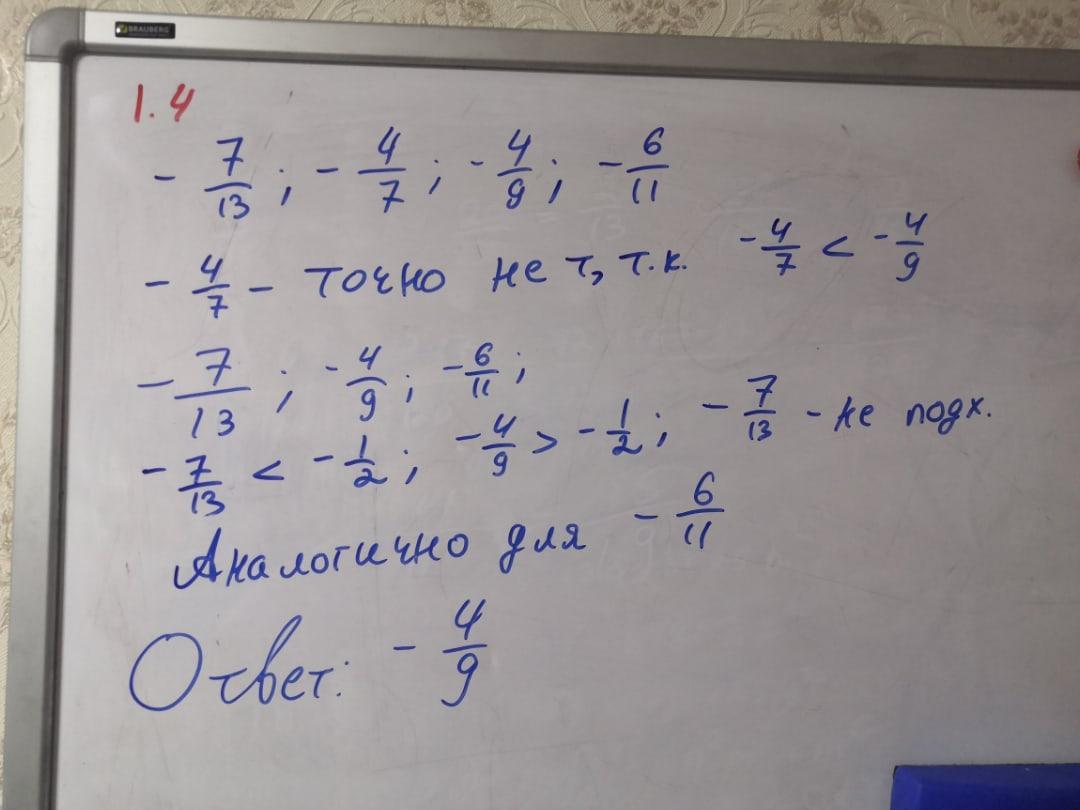 BRAUBERG
1.4
- 7/13; - 4/7; - 4/9; - 6/11
- 4/7 - точно не т, т.к. - 4/7 < - 4/9
- 7/13; - 4/9; - 6/11;
- 7/13 < - 1/2; - 4/9 > - 1/2; - 7/13 - не подх.
Аналогично для - 6/11
Ответ: - 4/9